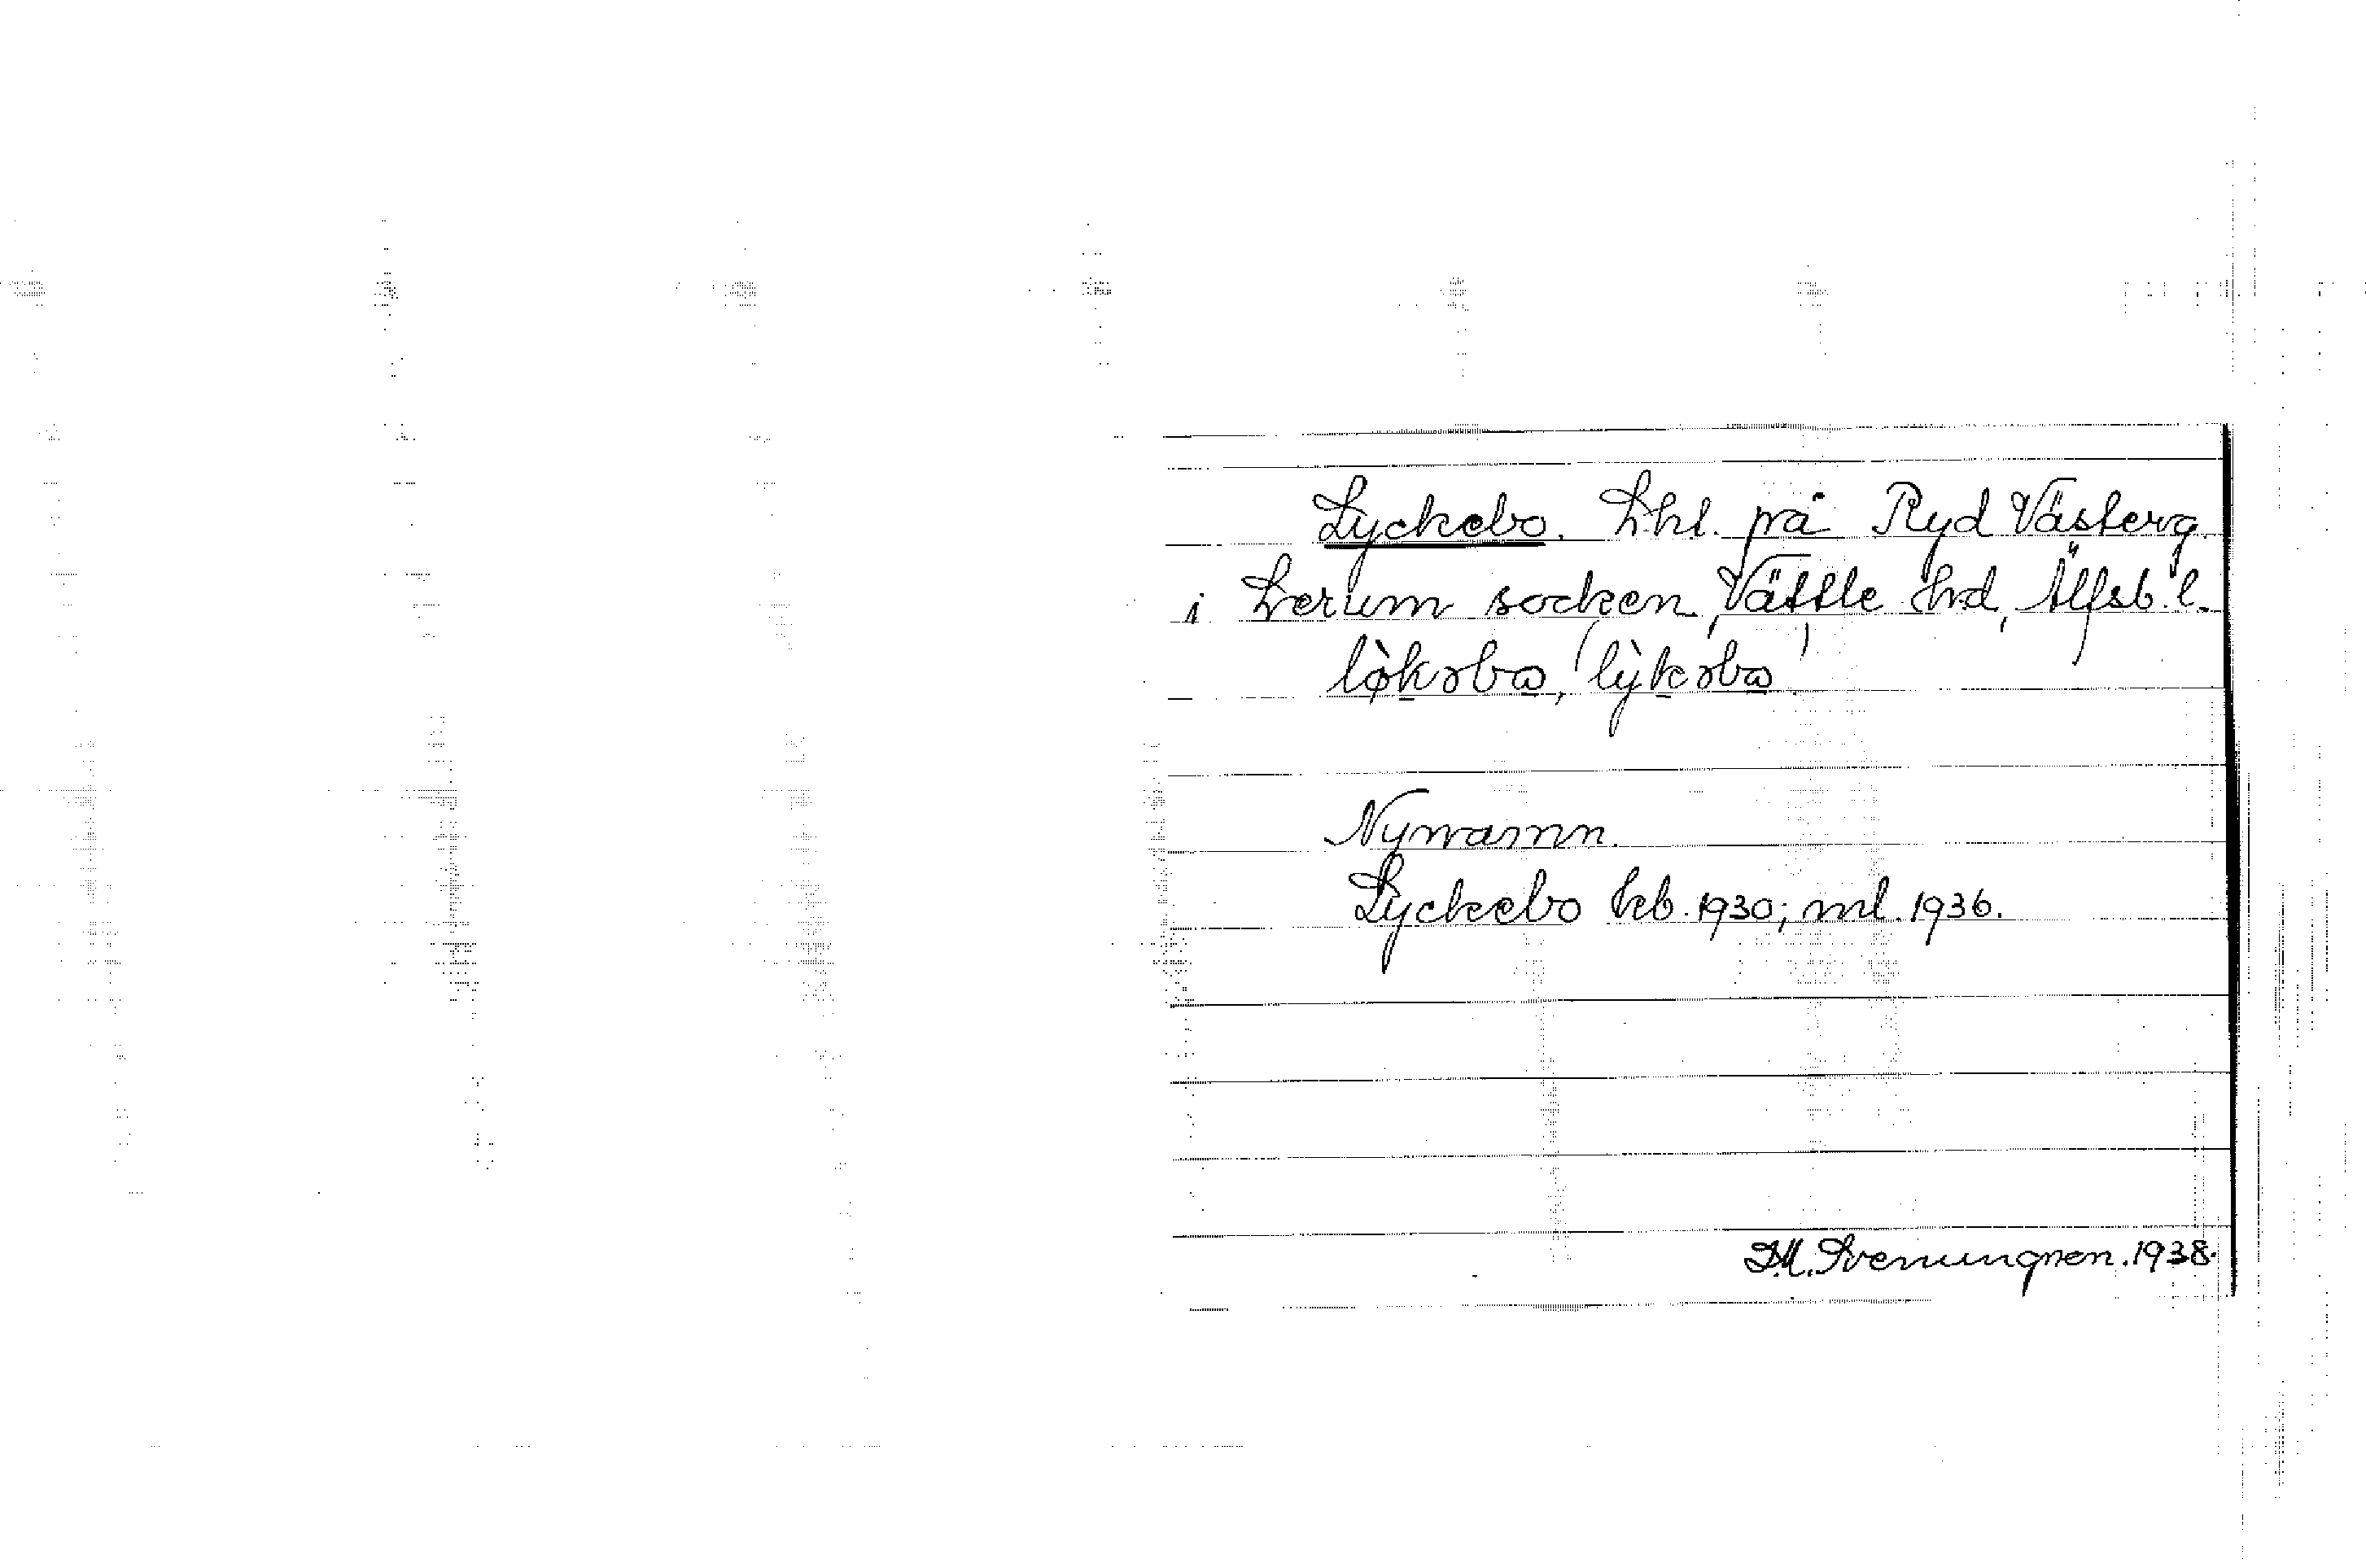 Lyckebo. Lhl. på Ryd Västerg.
i Lerum socken, Vättle hrd, Älfsb. l.
lø̀kəbω, (lỳkəbω)
Nynamn.
Lyckebo kb. 1930; ml. 1936.
D.M. Svenungson. 1938.